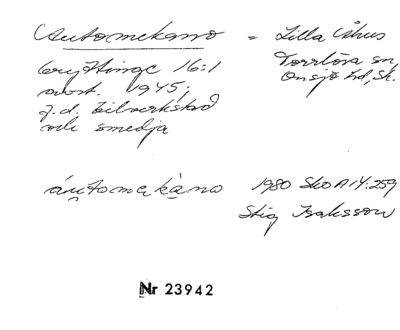 Automekano = Lilla Århus
Torrlösa sn,
Onsjö hd, Sk.
16:1
avst. 1945;
f.d. bilverkstad
och smedja
áutomekàno 1980 Sko A14:259
Stig Isaksson
Nr 23942